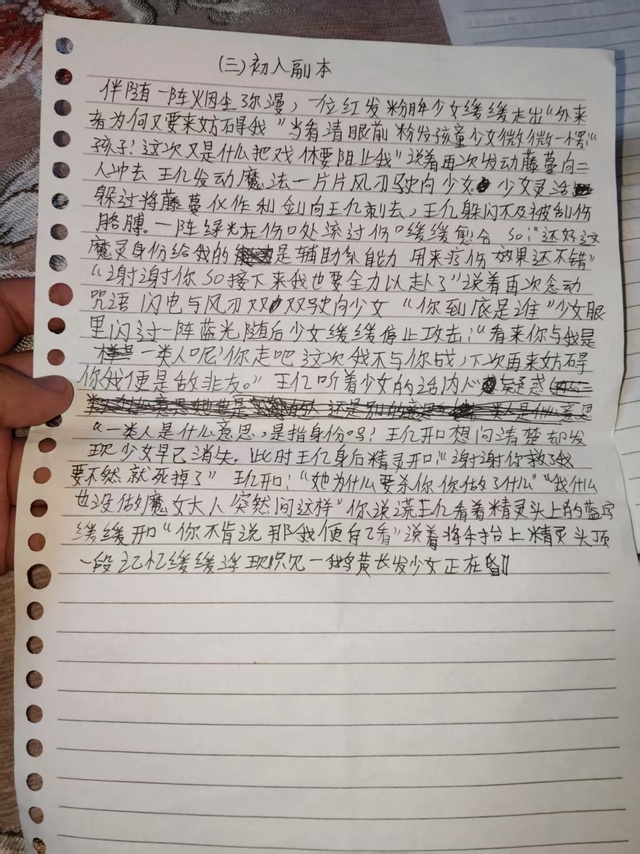 (三)初入副本
伴随一阵烟尘弥漫，一位红发粉眸少女缓缓走出“外来
者为何又要来妨碍我”当看清眼前粉发孩童少女微微一愣“
孩子？这次又是什么把戏休要阻止我”说着再次发动藤蔓向二
人冲去王亿发动魔法一片片风刃驶向少女少女灵活
躲过将藤蔓化作利剑向王亿刺去，王亿躲闪不及被划伤
胳膊。一阵绿光在伤口处流过伤口缓缓愈合 so:“还好这
魔灵身份给我的是辅助系能力用来疗伤效果还不错”
“谢谢你so接下来我也要全力以赴了”说着再次念动
咒语闪电与风刃双双驶向少女“你到底是谁”少女眼
里闪过一阵蓝光随后少女缓缓停止攻击：“看来你与我是
一类人呢！你走吧这次我不与你战，下次再来妨碍
你我便是敌非友。”王亿听着少女的话内心疑惑
“一类人是什么意思，是指身份吗？王亿开口想问清楚却发
现少女早已消失。此时王亿身后精灵开口：“谢谢你救了我
要不然就死掉了”王亿开口：“她为什么要杀你你做了什么”“我什么
也没做魔女大人突然间这样”你说谎王亿看着精灵头上的蓝
缓缓开口“你不肯说那我便自己看”说着将手抬上精灵头顶
一段记忆缓缓浮现只见一鹅黄长发少女正在